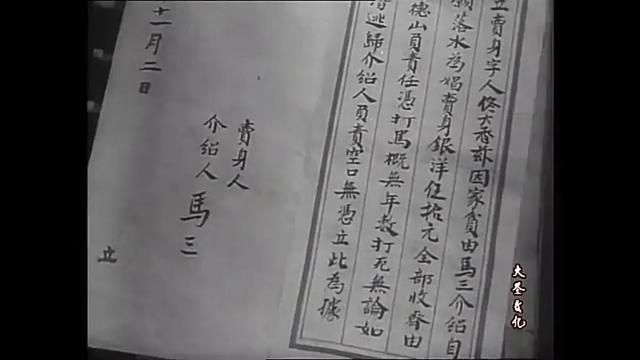 立賣身字人佟大香茲因家貧由馬三介紹自
願落水為娼賣身銀洋伍拾元全部收齊由
德山負責任憑打罵概無年數打死無論如
潛逃歸介紹人負責空口無憑立此為據
賣身人
介紹人 馬三
十一月二日
立
大圣文化